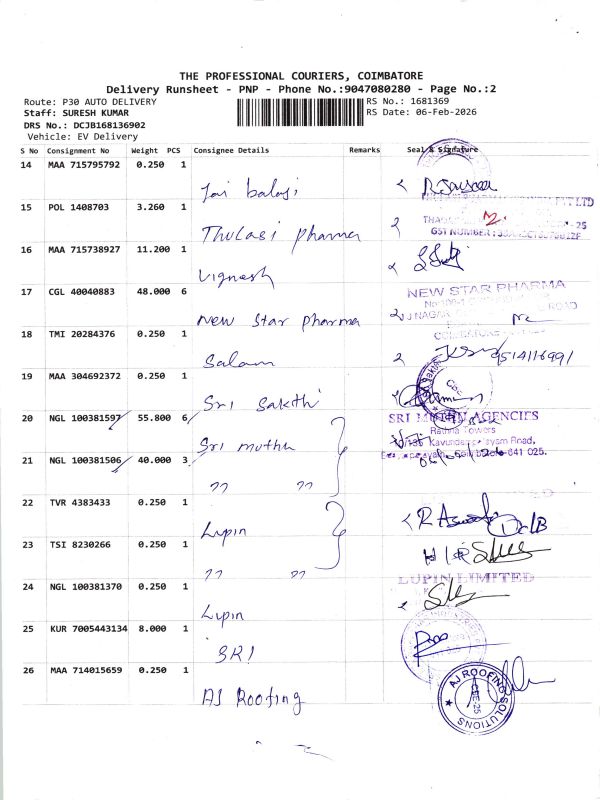 THE PROFESSIONAL COURIERS, COIMBATORE
Delivery Runsheet - PNP - Phone No.:9047080280 - Page No.:2
Route: P30 AUTO DELIVERY
RS No.: 1681369
Staff: SURESH KUMAR
RS Date: 06-Feb-2026
DRS No.: DCJB168136902
Vehicle: EV Delivery
S No Consignment No Weight PCS Consignee Details Remarks Seal & Signature
14 MAA 715795792 0.250 1
Jai balaji
15 POL 1408703 3.260 1
Thulasi pharma
GST NUMBER:
16 MAA 715738927 11.200 1
Vignesh
17 CGL 40040883 48.000 6
NEW STAR PHARMA
New Star pharma
NAGAR ROAD
18 TMI 20284376 0.250 1
Salam
19 MAA 304692372 0.250 1
Sri Sakthi
20 NGL 100381597 55.800 6
SRI MUTHU AGENCIES
Rathna Towers
Sri muthu
Road,
641 025.
21 NGL 100381506 40.000 3
" "
22 TVR 4383433 0.250 1
Lupin
23 TSI 8230266 0.250 1
" "
LUPIN LIMITED
24 NGL 100381370 0.250 1
Lupin
25 KUR 7005443134 8.000 1
SRI
26 MAA 714015659 0.250 1
AJ Roofing
AJ ROOFING SOLUTIONS
CBE-25